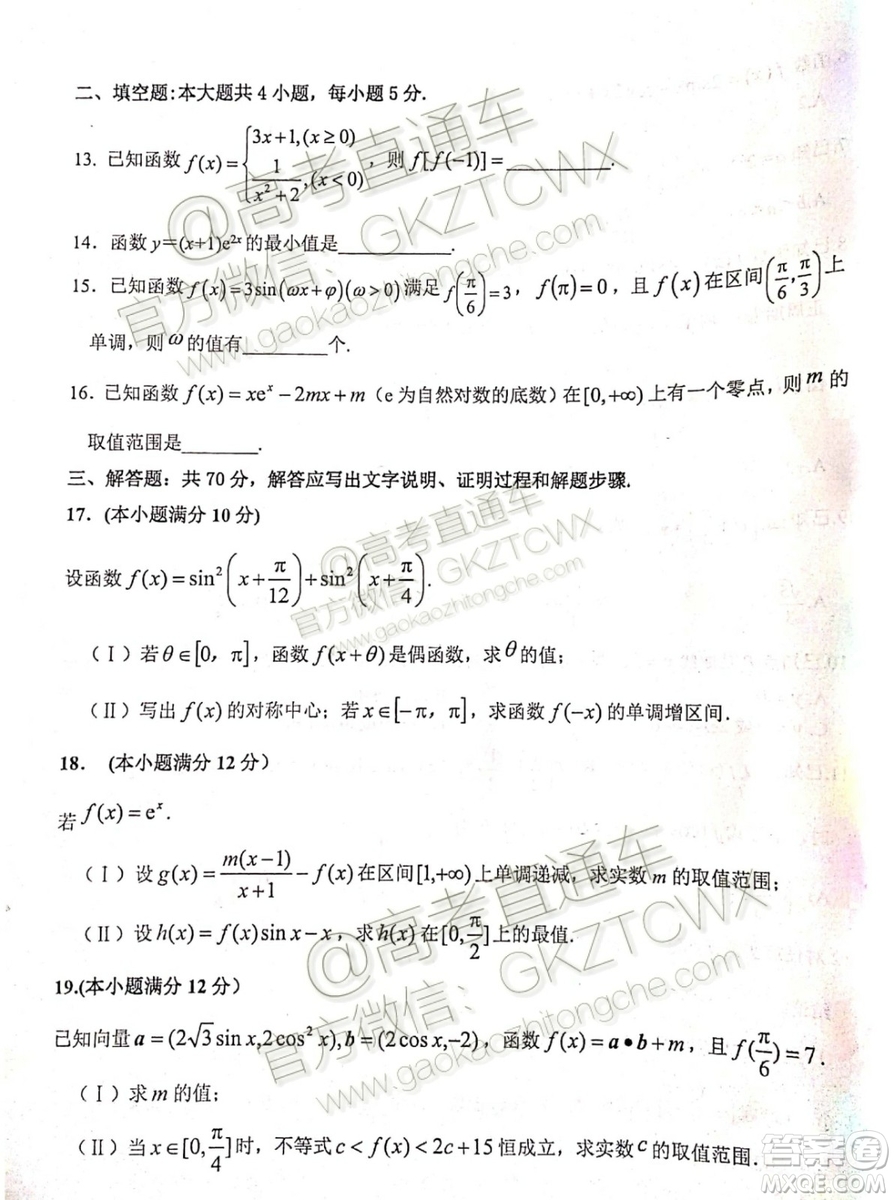 二、填空题:本大题共4小题，每小题5分.
13. 已知函数 f(x)={3x+1,(x≥0) 1/(x²+2),(x<0) ，则 f[f(−1)]=__________.
14. 函数 y=(x+1)e²ˣ 的最小值是__________.
15. 已知函数 f(x)=3sin(ωx+φ)(ω>0)满足 f(π/6)=3，f(π)=0，且 f(x) 在区间(π/6,π/3)上
单调，则 ω 的值有________个.
16. 已知函数 f(x)=xeˣ−2mx+m（e为自然对数的底数）在[0,+∞)上有一个零点，则 m 的
取值范围是_______.
三、解答题：共70分，解答应写出文字说明、证明过程和解题步骤.
17. (本小题满分10分)
设函数 f(x)=sin²(x+π/12)+sin²(x+π/4).
(Ⅰ)若θ∈[0，π]，函数 f(x+θ)是偶函数，求θ的值；
(Ⅱ)写出 f(x) 的对称中心；若 x∈[−π，π]，求函数 f(−x) 的单调增区间.
18. (本小题满分12分）
若 f(x)=eˣ.
(Ⅰ)设 g(x)=m(x−1)/(x+1)−f(x)在区间[1,+∞)上单调递减，求实数 m 的取值范围；
(Ⅱ)设 h(x)=f(x)sin x−x，求h(x)在[0,π/2]上的最值.
19.(本小题满分12分）
已知向量 a=(2√3sin x,2cos²x),b=(2cos x,−2)，函数 f(x)=a•b+m，且 f(π/6)=7.
(Ⅰ)求 m 的值；
(Ⅱ)当 x∈[0,π/4]时，不等式 c<f(x)<2c+15 恒成立，求实数 c 的取值范围.
@高考直通车
官方微信：GKZTCWX
www.gaokaozhitongche.com
@高考直通车
官方微信：GKZTCWX
www.gaokaozhitongche.com
@高考直通车
官方微信：GKZTCWX
www.gaokaozhitongche.com
答案圈
MXQE.COM